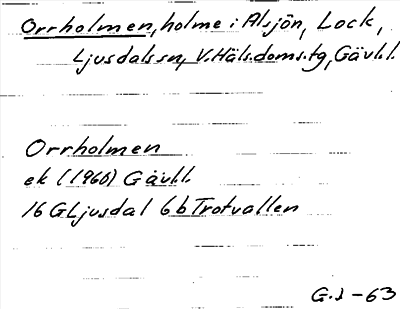 Orrholmen, holme i Alsjön, Lock,
Ljusdals sn, V. Häls. doms. tg, Gävl. l.
Orrholmen
ek (1960) Gävl. l.
16 G Ljusdal 6 b Trotvallen
G. J -63